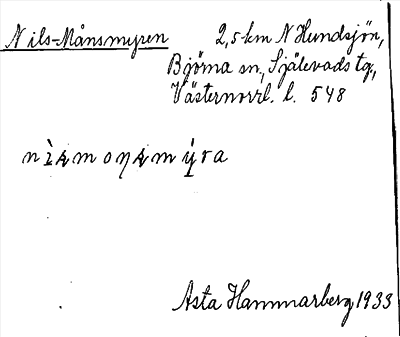 Nils-Månsmyren 2,5 km N Hundsjön,
Björna sn, Själevads tg,
Västernorrl. l. 548
Asta Hammarberg 1933